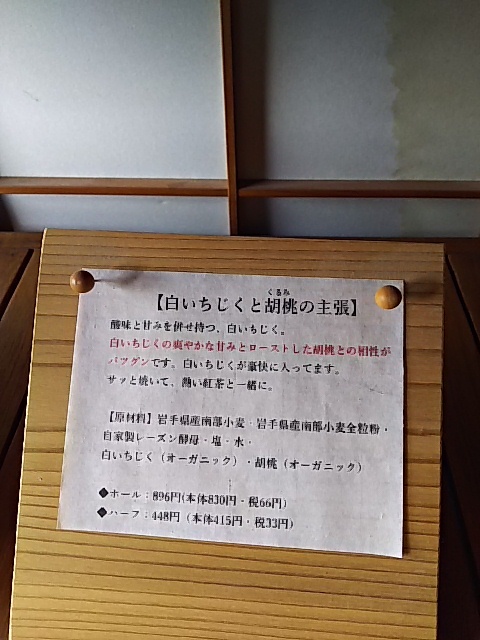 くるみ
【白いちじくと胡桃の主張】
酸味と甘みを併せ持つ、白いちじく。
白いちじくの爽やかな甘みとローストした胡桃との相性が
バツグンです。白いちじくが豪快に入ってます。
サッと焼いて、熱い紅茶と一緒に。
【原材料】岩手県産南部小麦・岩手県産南部小麦全粒粉・
自家製レーズン酵母・塩・水・
白いちじく（オーガニック）・胡桃（オーガニック）
◆ホール：896円(本体830円・税66円)
◆ハーフ：448円（本体415円・税33円)